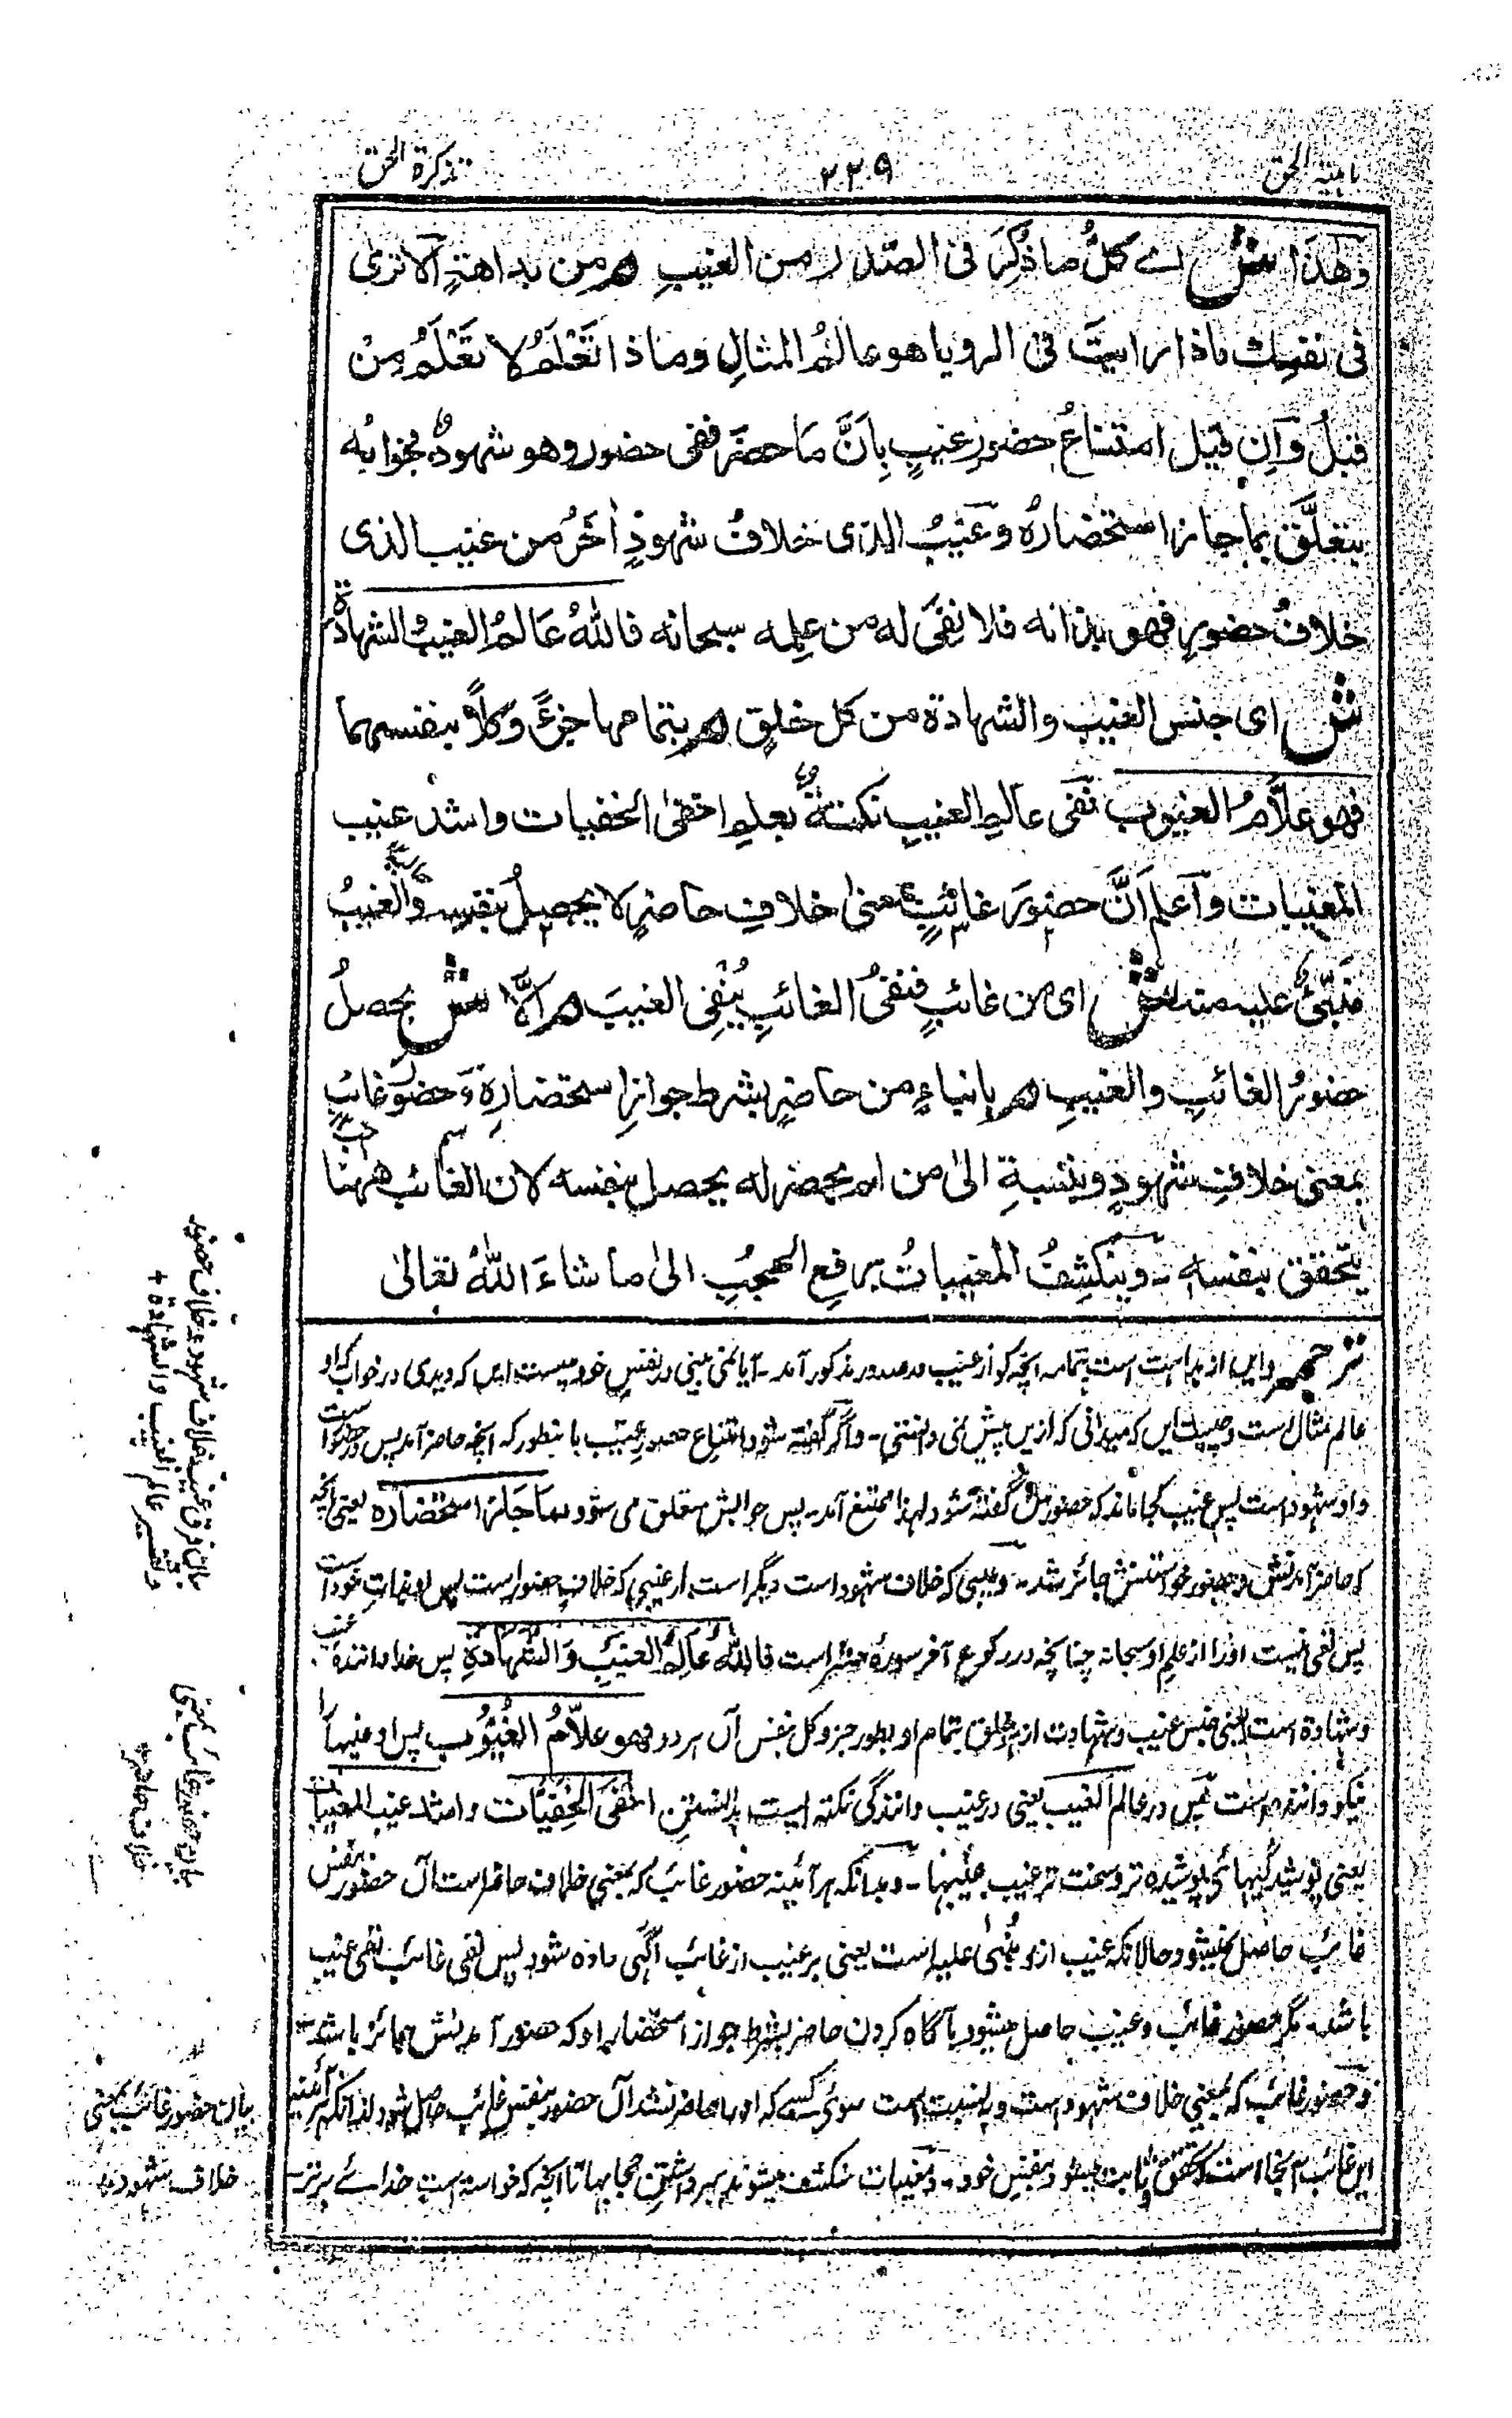 تذكرة الحق
٢٢٩
ماهية الحق
وَهٰذَا ش اے كلُّ ما ذُكِرَ فى الصّدر من الغيبِ م من بداهتهٖ اَلا ترىٰ
فى نفسِك ماذا رايتَ فى الرويا هو عالمُ المثالِ وماذا تَعْلَمُ لا تَعْلَمُ مِنْ
قبلُ وَاِن قيل امتناعُ حضورِ غيبٍ بِاَنَّ مَا حضرَ ففى حضور وهو شهودٌ فجوابُه
يتعلَّق بما جاز استحضارُه وغيبُ الذى خلافُ شهودٍ اٰخَرُ من غيب الذى
خلافُ حضورٍ فهو بذاته فلا نفىَ له من علمه سبحانه فاللهُ عَالمُ الغيبِ والشهادةِ
ش اى جنس الغيب والشهادة من كل خلقٍ م بتمامها جزءً وكلاً بنفسهما
فهو علَّامُ الغيوب نفى عالم الغيبِ نكتةٌ بعلمِ اخفىٰ الخفيات واشد غيب
المغيبات وَاعلم اَنَّ حضورَ غائبٍ بمعنىٰ خلافِ حاضرٍ لا يحصلُ بنفسه والغيبُ
مُنَبّىٌ عليه منه ش اى من غائبٍ فنفىُ الغائبِ يُنْفِى الغيبَ م اِلَّا ش يحصلُ
حضورُ الغائبِ والغيبِ م بانباءٍ من حاضرٍ بشرط جوازِ استحضارِهٖ وَحضورُ غائبٍ
بمعنى خلافِ شهودٍ وبنسبةِ الىٰ من لم يحضر له يحصل بنفسه لان الغائب هٰهنا
يتحقق بنفسه ۔ وينكشِفُ المغيباتُ برفعِ الحجبِ الىٰ ما شاءَ اللهُ تعالىٰ
ترجمہ وایں از بداہت است بتمامہ آنچہ کہ از غیب در صدور مذکور آمد ۔ آیا نمی بینی در نفس خود چیست ایں کہ دیدی در خواب کہ او
عالم مثال است وچیست ایں کہ میدانی کہ ازیں پیش نمی دانستی ۔ واگر گفتہ شود امتناع حضور غیب باینطور کہ آنچہ حاضر آمد پس در حضور است
واو شہود است پس غیب کجا ماند کہ حضورش گفتہ شود لہذا ممتنع آمد ۔ پس جوابش متعلق می شود بما جاز استحضارہ یعنی آنچہ
کہ حاضر آمدنش وبحضور خواستنش جائز شد ۔ وغیبی کہ خلاف شہود است دیگر است از غیبی کہ خلاف حضور است پس او بذات خود است
پس نفی نیست اورا از علم او سبحانہ چنانچہ در رکوع آخر سورۂ حشر است فاللهُ عَالِمُ الغيبِ وَالشَّهَادةِ پس خدا دانندہ غیب
وشہادة است یعنی جنس غیب وشہادت از ہر خلق بتمام او بطور جز وکل بنفس آں ہر دو فهو علّامُ الغُيُوب پس او غیبہا را
نیکو دانندہ است پس در عالم الغیب یعنی در غیب دانندگی نکتہ است بدانستن اخفى الخفيات واشد غيب المغيبات
یعنی پوشیدگیہائے پوشیدہ تر وسخت تر غیب غیبہا ۔ وبدانکہ ہر آئینہ حضور غائب کہ بمعنی خلاف حاضر است آں حضور بنفس
غائب حاصل نمیشود وحالانکہ غیب ازو مُنبٰی علیہ است یعنی بر غیب از غائب آگہی دادہ شود پس نفی غائب نفی غیب
باشد ۔ مگر حضور غائب وغیب حاصل میشود بآگاہ کردن حاضر بشرط جواز استحضار او کہ حضور آمدنش جائز باشد ۔
وحضور غائب کہ بمعنی خلاف شہود است وبہ نسبت است سوئے کسے کہ او را حاضر نشد آں حضور بنفس غائب حاصل شود زیرانکہ ہر آئینہ
ایں غائب اینجا است کہ متحقق وثابت میشود بنفس خود ۔ ومغیبات منکشف میشوند ببرداشتن حجابہا تا آنچہ کہ خواستہ است خدائے برتر ۔
بیان فرق غیب خلاف شہود وخلاف حضور
وتفسیر عالم الغیب والشہادة +
بیان حضور غائب بمعنی
خلاف حاضر +
بیان حضور غائب بمعنی
خلاف شہود +